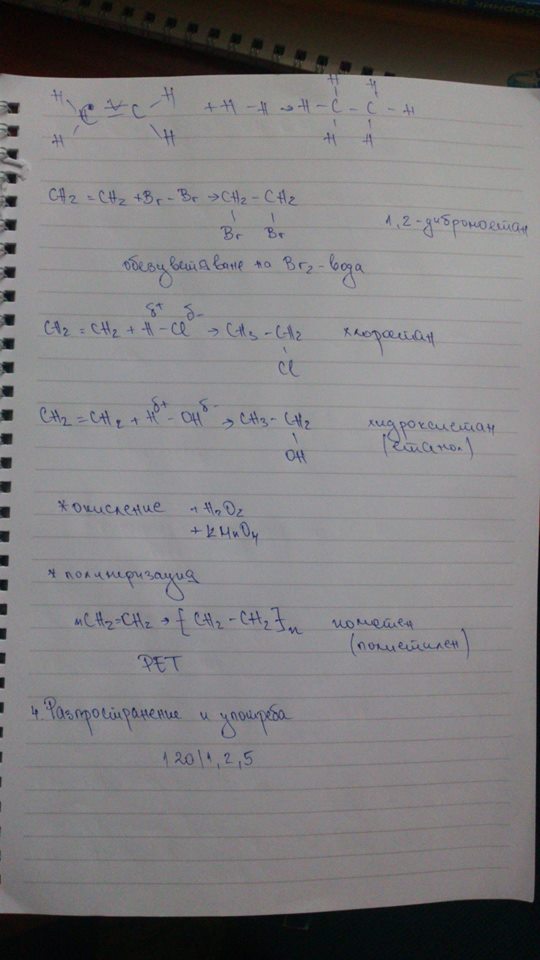 H H H H
C = C + H - H → H - C - C - H
H H H H
CH2 = CH2 + Br - Br → CH2 - CH2
Br Br
1,2-дибромоетан
обезцветяване на Br2-вода
δ+ δ-
CH2 = CH2 + H - Cl → CH3 - CH2 хлороетан
Cl
δ+ δ-
CH2 = CH2 + H - OH → CH3 - CH2 хидроксиетан
OH (етанол)
* окисление + H2O2
+ KMnO4
* полимеризация
nCH2=CH2 → [CH2 - CH2]n
(полиетилен)
PET
4. Разпространение и употреба
120/1,2,5